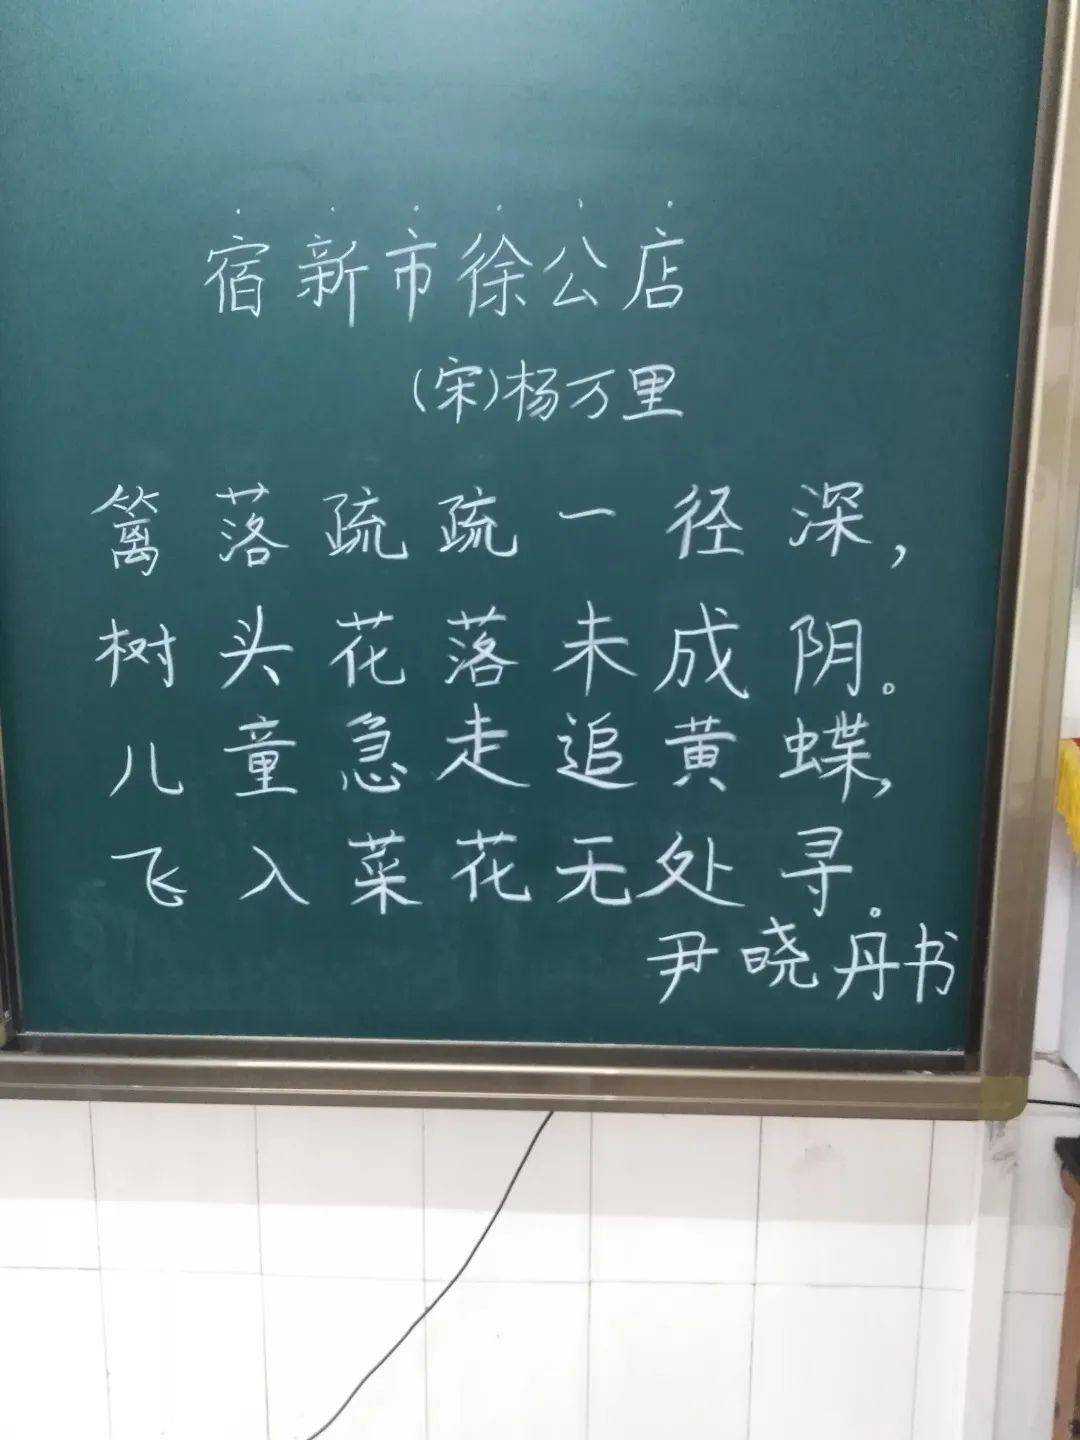 宿新市徐公店
(宋)杨万里
篱落疏疏一径深,
树头花落未成阴。
儿童急走追黄蝶,
飞入菜花无处寻。
尹晓丹书